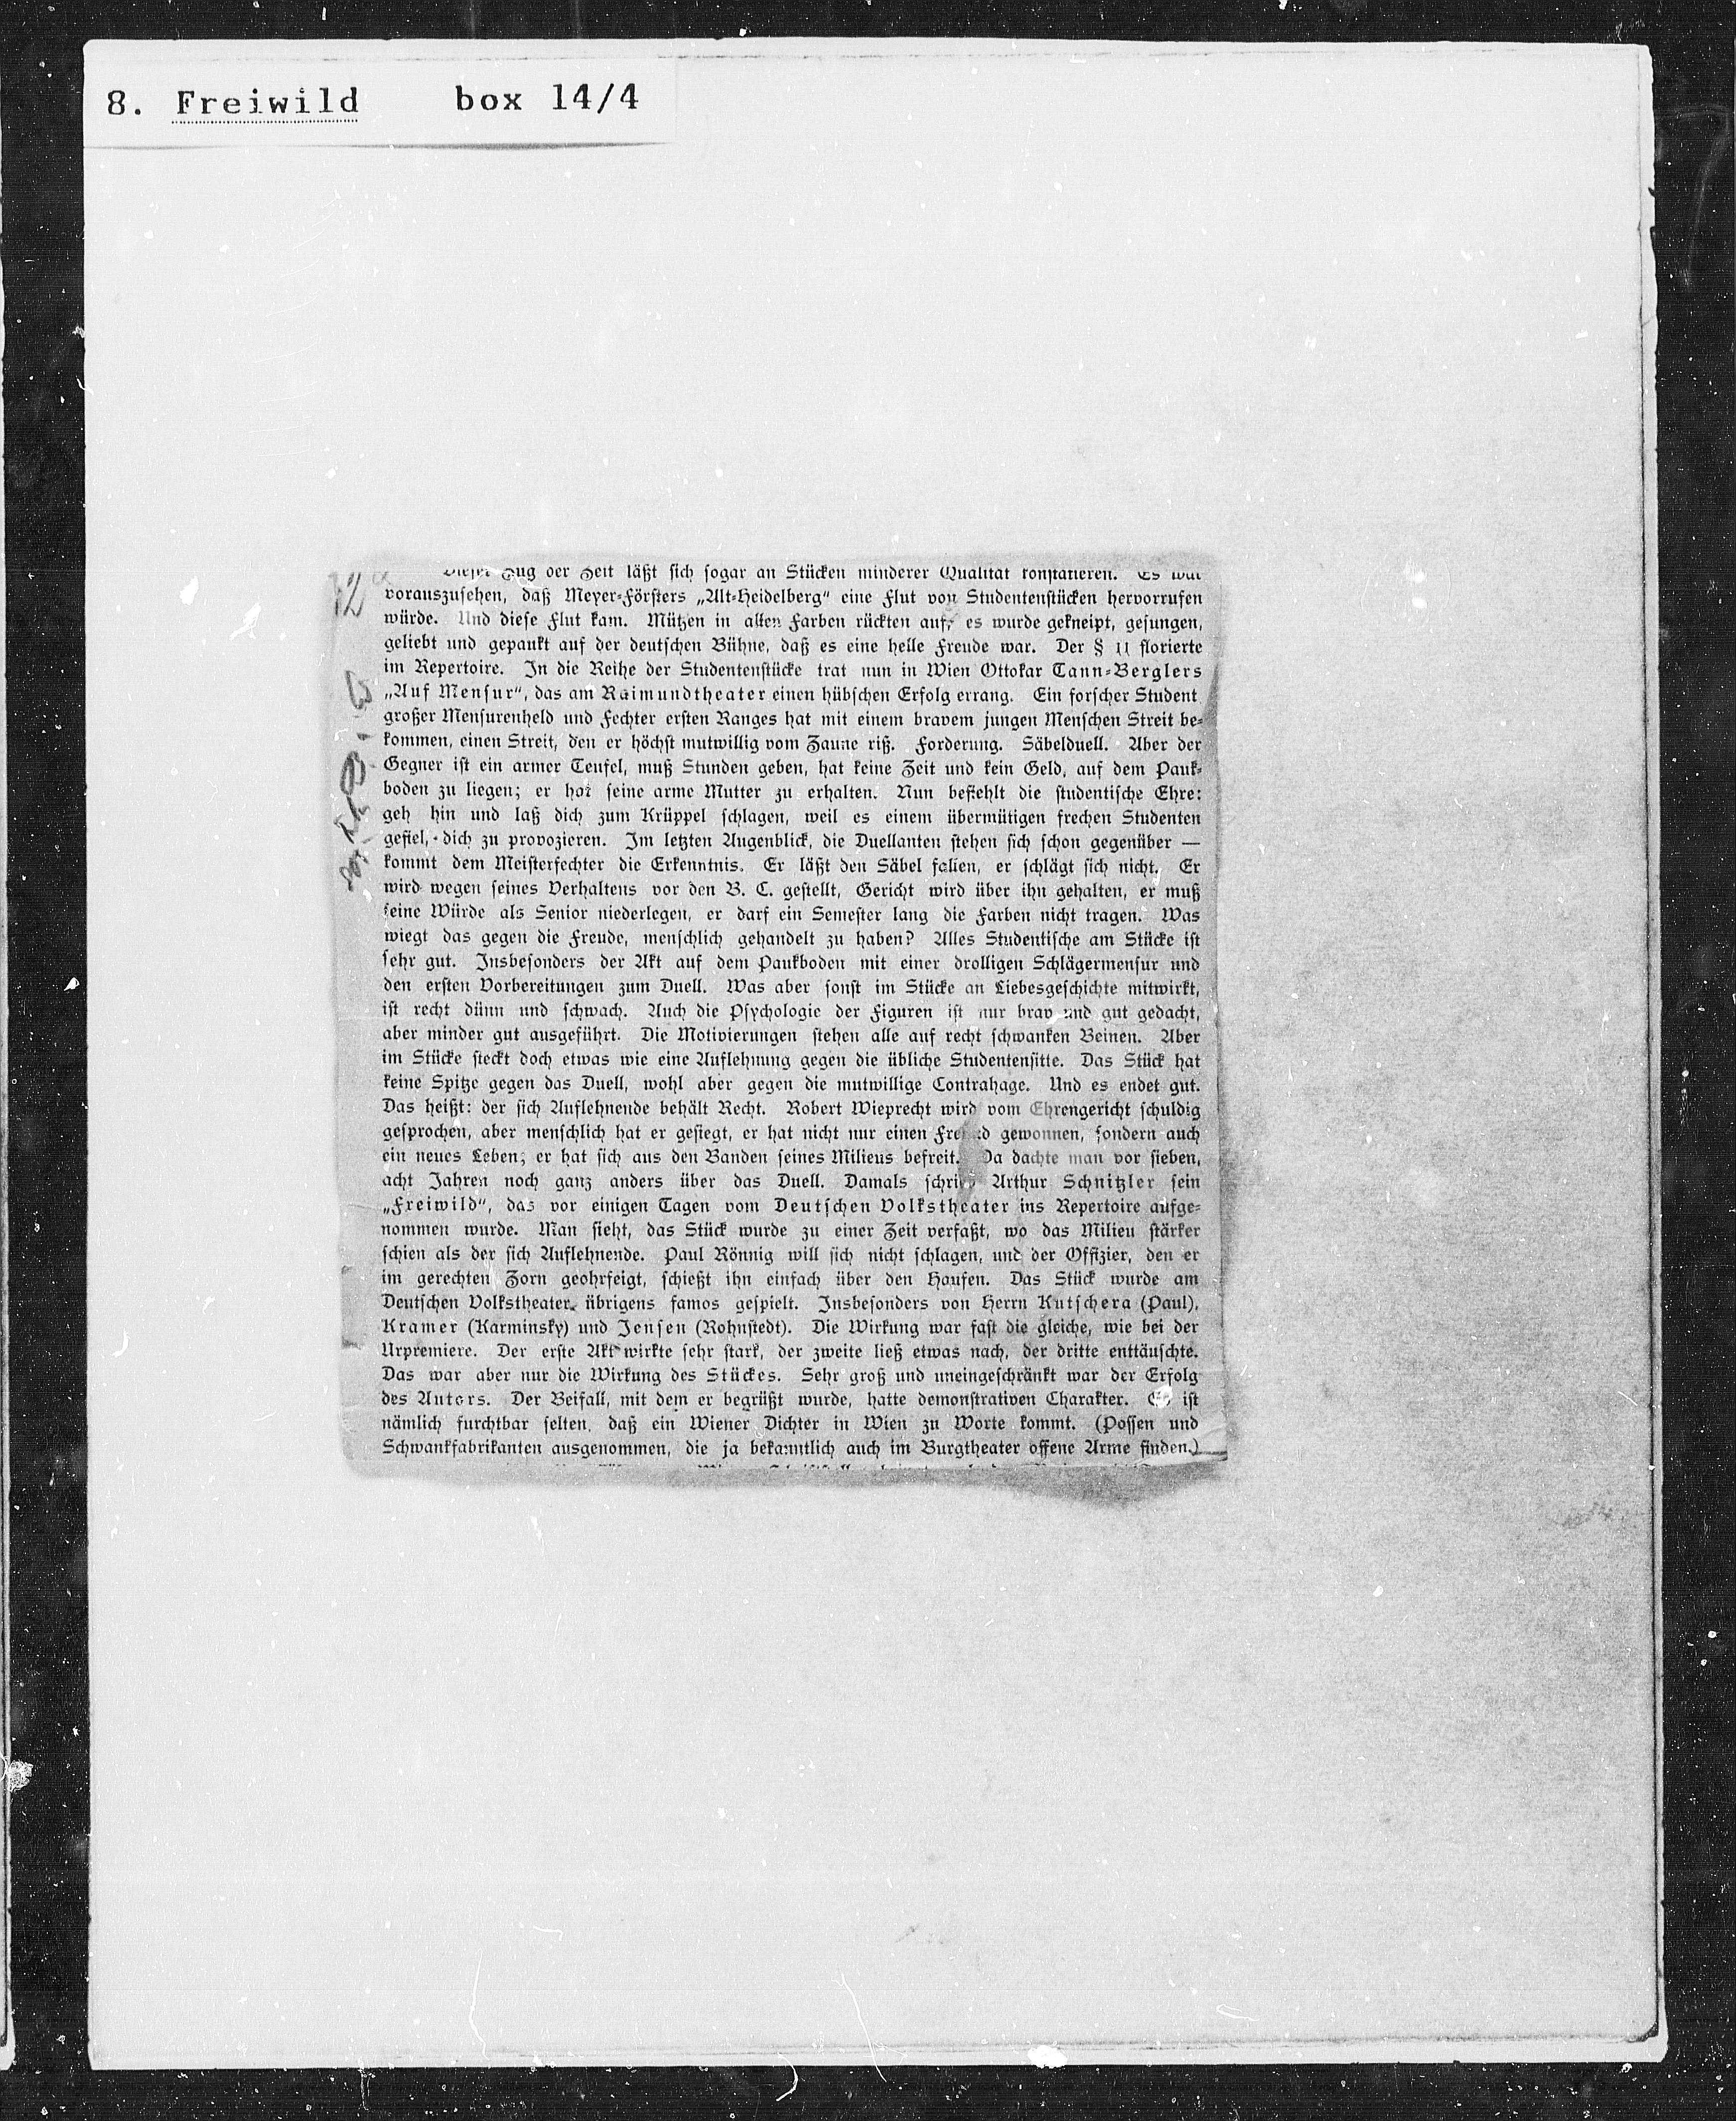 8. Freiwild box 14/4
Dieser Zug der Zeit läßt sich sogar an Stücken minderer Qualität konstatieren. Es war
vorauszusehen, daß Meyer-Försters „Alt-Heidelberg“ eine Flut von Studentenstücken hervorrufen
würde. Und diese Flut kam. Mützen in allen Farben rückten auf, es wurde gekneipt, gesungen,
geliebt und gepaukt auf der deutschen Bühne, daß es eine helle Freude war. Der § 11 florierte
im Repertoire. In die Reihe der Studentenstücke trat nun in Wien Ottokar Tann-Berglers
„Auf Mensur“, das am Raimundtheater einen hübschen Erfolg errang. Ein forscher Student
großer Mensurenheld und Fechter ersten Ranges hat mit einem bravem jungen Menschen Streit be-
kommen, einen Streit, den er höchst mutwillig vom Zaune riß. Forderung. Säbelduell. Aber der
Gegner ist ein armer Teufel, muß Stunden geben, hat keine Zeit und kein Geld, auf dem Pauk-
boden zu liegen; er hat seine arme Mutter zu erhalten. Nun befiehlt die studentische Ehre:
geh hin und laß dich zum Krüppel schlagen, weil es einem übermütigen frechen Studenten
gefiel, dich zu provozieren. Im letzten Augenblick, die Duellanten stehen sich schon gegenüber —
kommt dem Meisterfechter die Erkenntnis. Er läßt den Säbel fallen, er schlägt sich nicht. Er
wird wegen seines Verhaltens vor den B. C. gestellt, Gericht wird über ihn gehalten, er muß
seine Würde als Senior niederlegen, er darf ein Semester lang die Farben nicht tragen. Was
wiegt das gegen die Freude, menschlich gehandelt zu haben? Alles Studentische am Stücke ist
sehr gut. Insbesonders der Akt auf dem Paukboden mit einer drolligen Schlägermensur und
den ersten Vorbereitungen zum Duell. Was aber sonst im Stücke an Liebesgeschichte mitwirkt,
ist recht dünn und schwach. Auch die Psychologie der Figuren ist nur brav und gut gedacht,
aber minder gut ausgeführt. Die Motivierungen stehen alle auf recht schwanken Beinen. Aber
im Stücke steckt doch etwas wie eine Auflehnung gegen die übliche Studentensitte. Das Stück hat
keine Spitze gegen das Duell, wohl aber gegen die mutwillige Contrahage. Und es endet gut.
Das heißt: der sich Auflehnende behält Recht. Robert Wieprecht wird vom Ehrengericht schuldig
gesprochen, aber menschlich hat er gesiegt, er hat nicht nur einen Freund gewonnen, sondern auch
ein neues Leben; er hat sich aus den Banden seines Milieus befreit. Da dachte man vor sieben,
acht Jahren noch ganz anders über das Duell. Damals schrieb Arthur Schnitzler sein
„Freiwild“, das vor einigen Tagen vom Deutschen Volkstheater ins Repertoire aufge-
nommen wurde. Man sieht, das Stück wurde zu einer Zeit verfaßt, wo das Milieu stärker
schien als der sich Auflehnende. Paul Rönnig will sich nicht schlagen, und der Offizier, den er
im gerechten Zorn geohrfeigt, schießt ihn einfach über den Haufen. Das Stück wurde am
Deutschen Volkstheater übrigens famos gespielt. Insbesonders von Herrn Kutschera (Paul),
Kramer (Karminsky) und Jensen (Rohnstedt). Die Wirkung war fast die gleiche, wie bei der
Urpremiere. Der erste Akt wirkte sehr stark, der zweite ließ etwas nach, der dritte enttäuschte.
Das war aber nur die Wirkung des Stückes. Sehr groß und uneingeschränkt war der Erfolg
des Autors. Der Beifall, mit dem er begrüßt wurde, hatte demonstrativen Charakter. Es ist
nämlich furchtbar selten, daß ein Wiener Dichter in Wien zu Worte kommt. (Possen und
Schwankfabrikanten ausgenommen, die ja bekanntlich auch im Burgtheater offene Arme finden.)